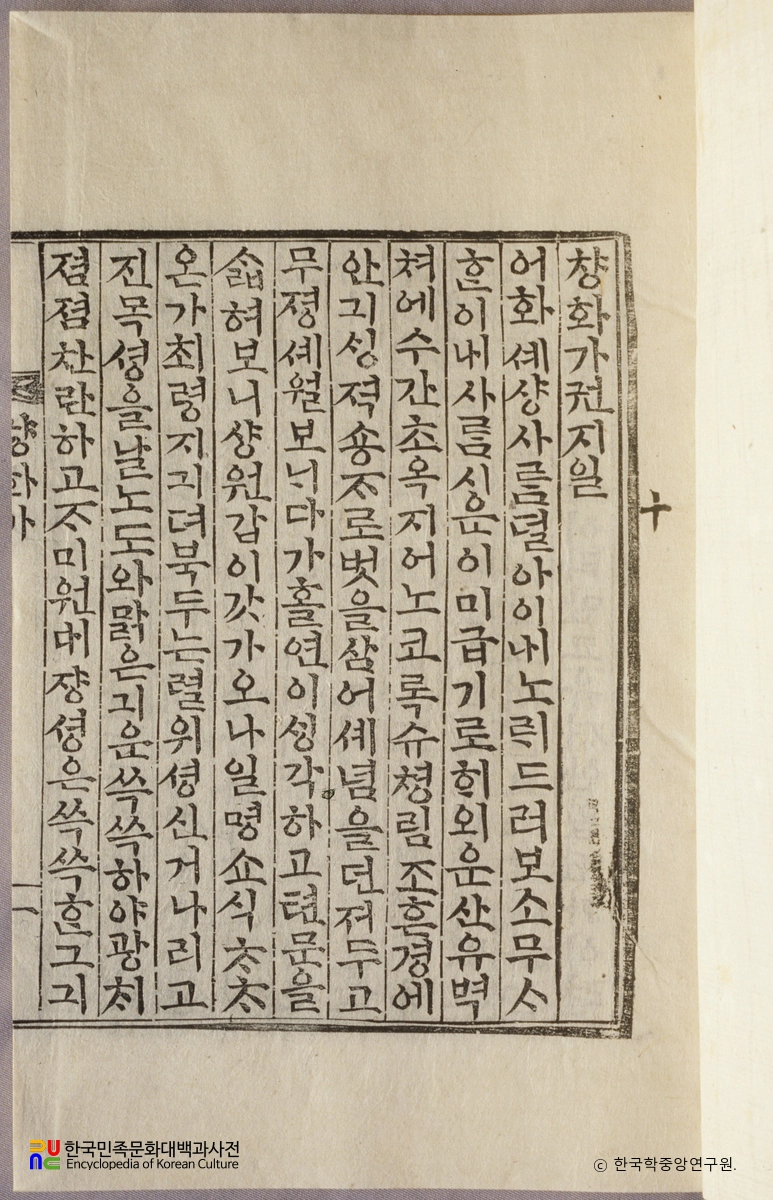 十
챵화가권지일
어화셰샹사ᄅᆞᆷ덜아이ᄂᆡ노ᄅᆡ드러보소무ᄉᆞ
ᄒᆞᆫ이ᄂᆡ사ᄅᆞᆷ시운이미급기로ᄒᆡ외운산유벽
쳐에수간초옥지어노코록슈쳥림조흔경에
안긔ᄉᆡᆼ젹숑ᄌᆞ로벗을삼어셰념을던져두고
무졍셰월보ᄂᆡ다가홀연이ᄉᆡᆼ각하고텬문을
ᄉᆞᆲ혀보니샹원갑이갓가오나일명쇼식ᄎᆞᄎᆞ
온가최령지긔뎌북두는렬위셩신거나리고
진목셩을날노도와맑은긔운쓱쓱하야광ᄎᆡ
졈졈찬란하고ᄌᆞ미원대쟝셩은쓱쓱ᄒᆞᆫ그긔
챵화가
一
한국민족문화대백과사전
Encyclopedia of Korean Culture
ⓒ 한국학중앙연구원.